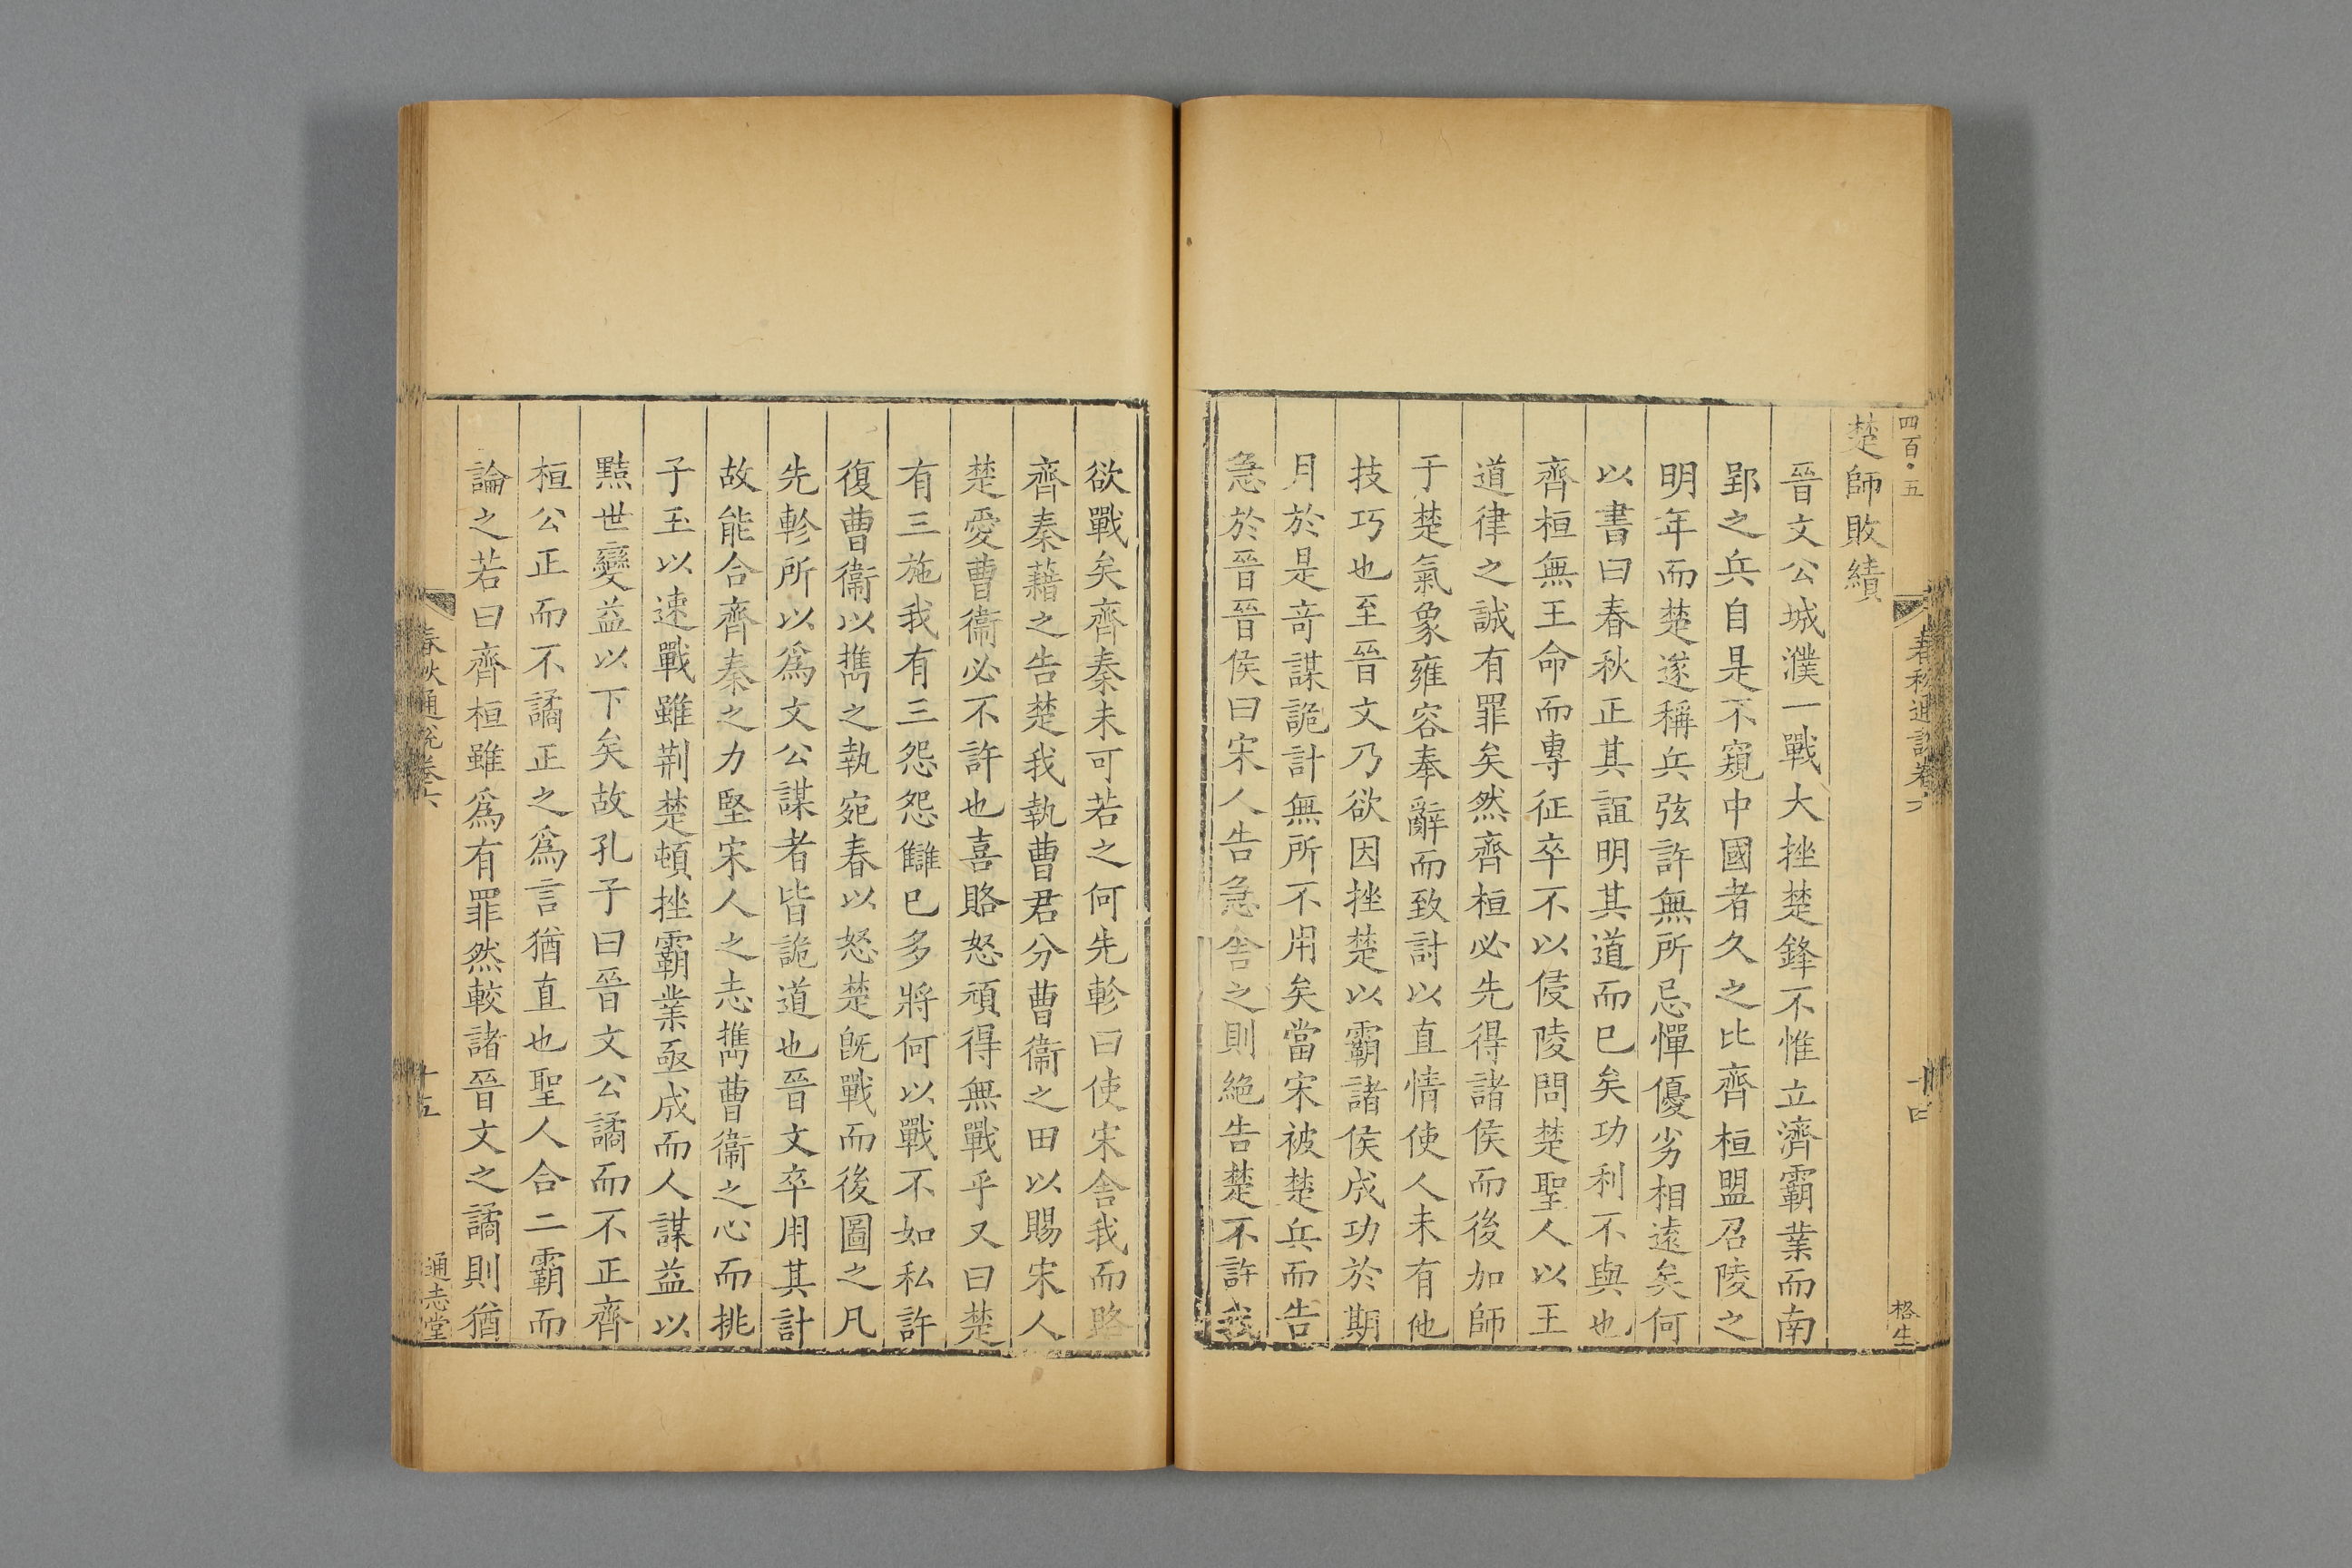 四百·五
春秋通說卷六
十四
格生
楚師敗績
晉文公城濮一戰大挫楚鋒不惟立濟霸業而南
郢之兵自是不窺中國者久之比齊桓盟召陵之
明年而楚遂稱兵弦許無所忌憚優劣相遠矣何
以書曰春秋正其誼明其道而已矣功利不與也
齊桓無王命而專征卒不以侵陵問楚聖人以王
道律之誠有罪矣然齊桓必先得諸侯而後加師
于楚氣象雍容奉辭而致討以直情使人未有他
技巧也至晉文乃欲因挫楚以霸諸侯成功於期
月於是竒謀詭計無所不用矣當宋被楚兵而告
急於晉晉侯曰宋人告急舍之則絶告楚不許我
欲戰矣齊秦未可若之何先軫曰使宋舍我而賂
齊秦藉之告楚我執曹君分曹衞之田以賜宋人
楚愛曹衞必不許也喜賂怒頑得無戰乎又曰楚
有三施我有三怨怨讎已多將何以戰不如私許
復曹衞以攜之執宛春以怒楚旣戰而後圖之凡
先軫所以爲文公謀者皆詭道也晉文卒用其計
故能合齊秦之力堅宋人之志攜曹衞之心而挑
子玉以速戰雖荆楚頓挫霸業亟成而人謀益以
黠世變益以下矣故孔子曰晉文公譎而不正齊
桓公正而不譎正之爲言猶直也聖人合二霸而
論之若曰齊桓雖爲有罪然較諸晉文之譎則猶
春秋通說卷六
十五
通志堂